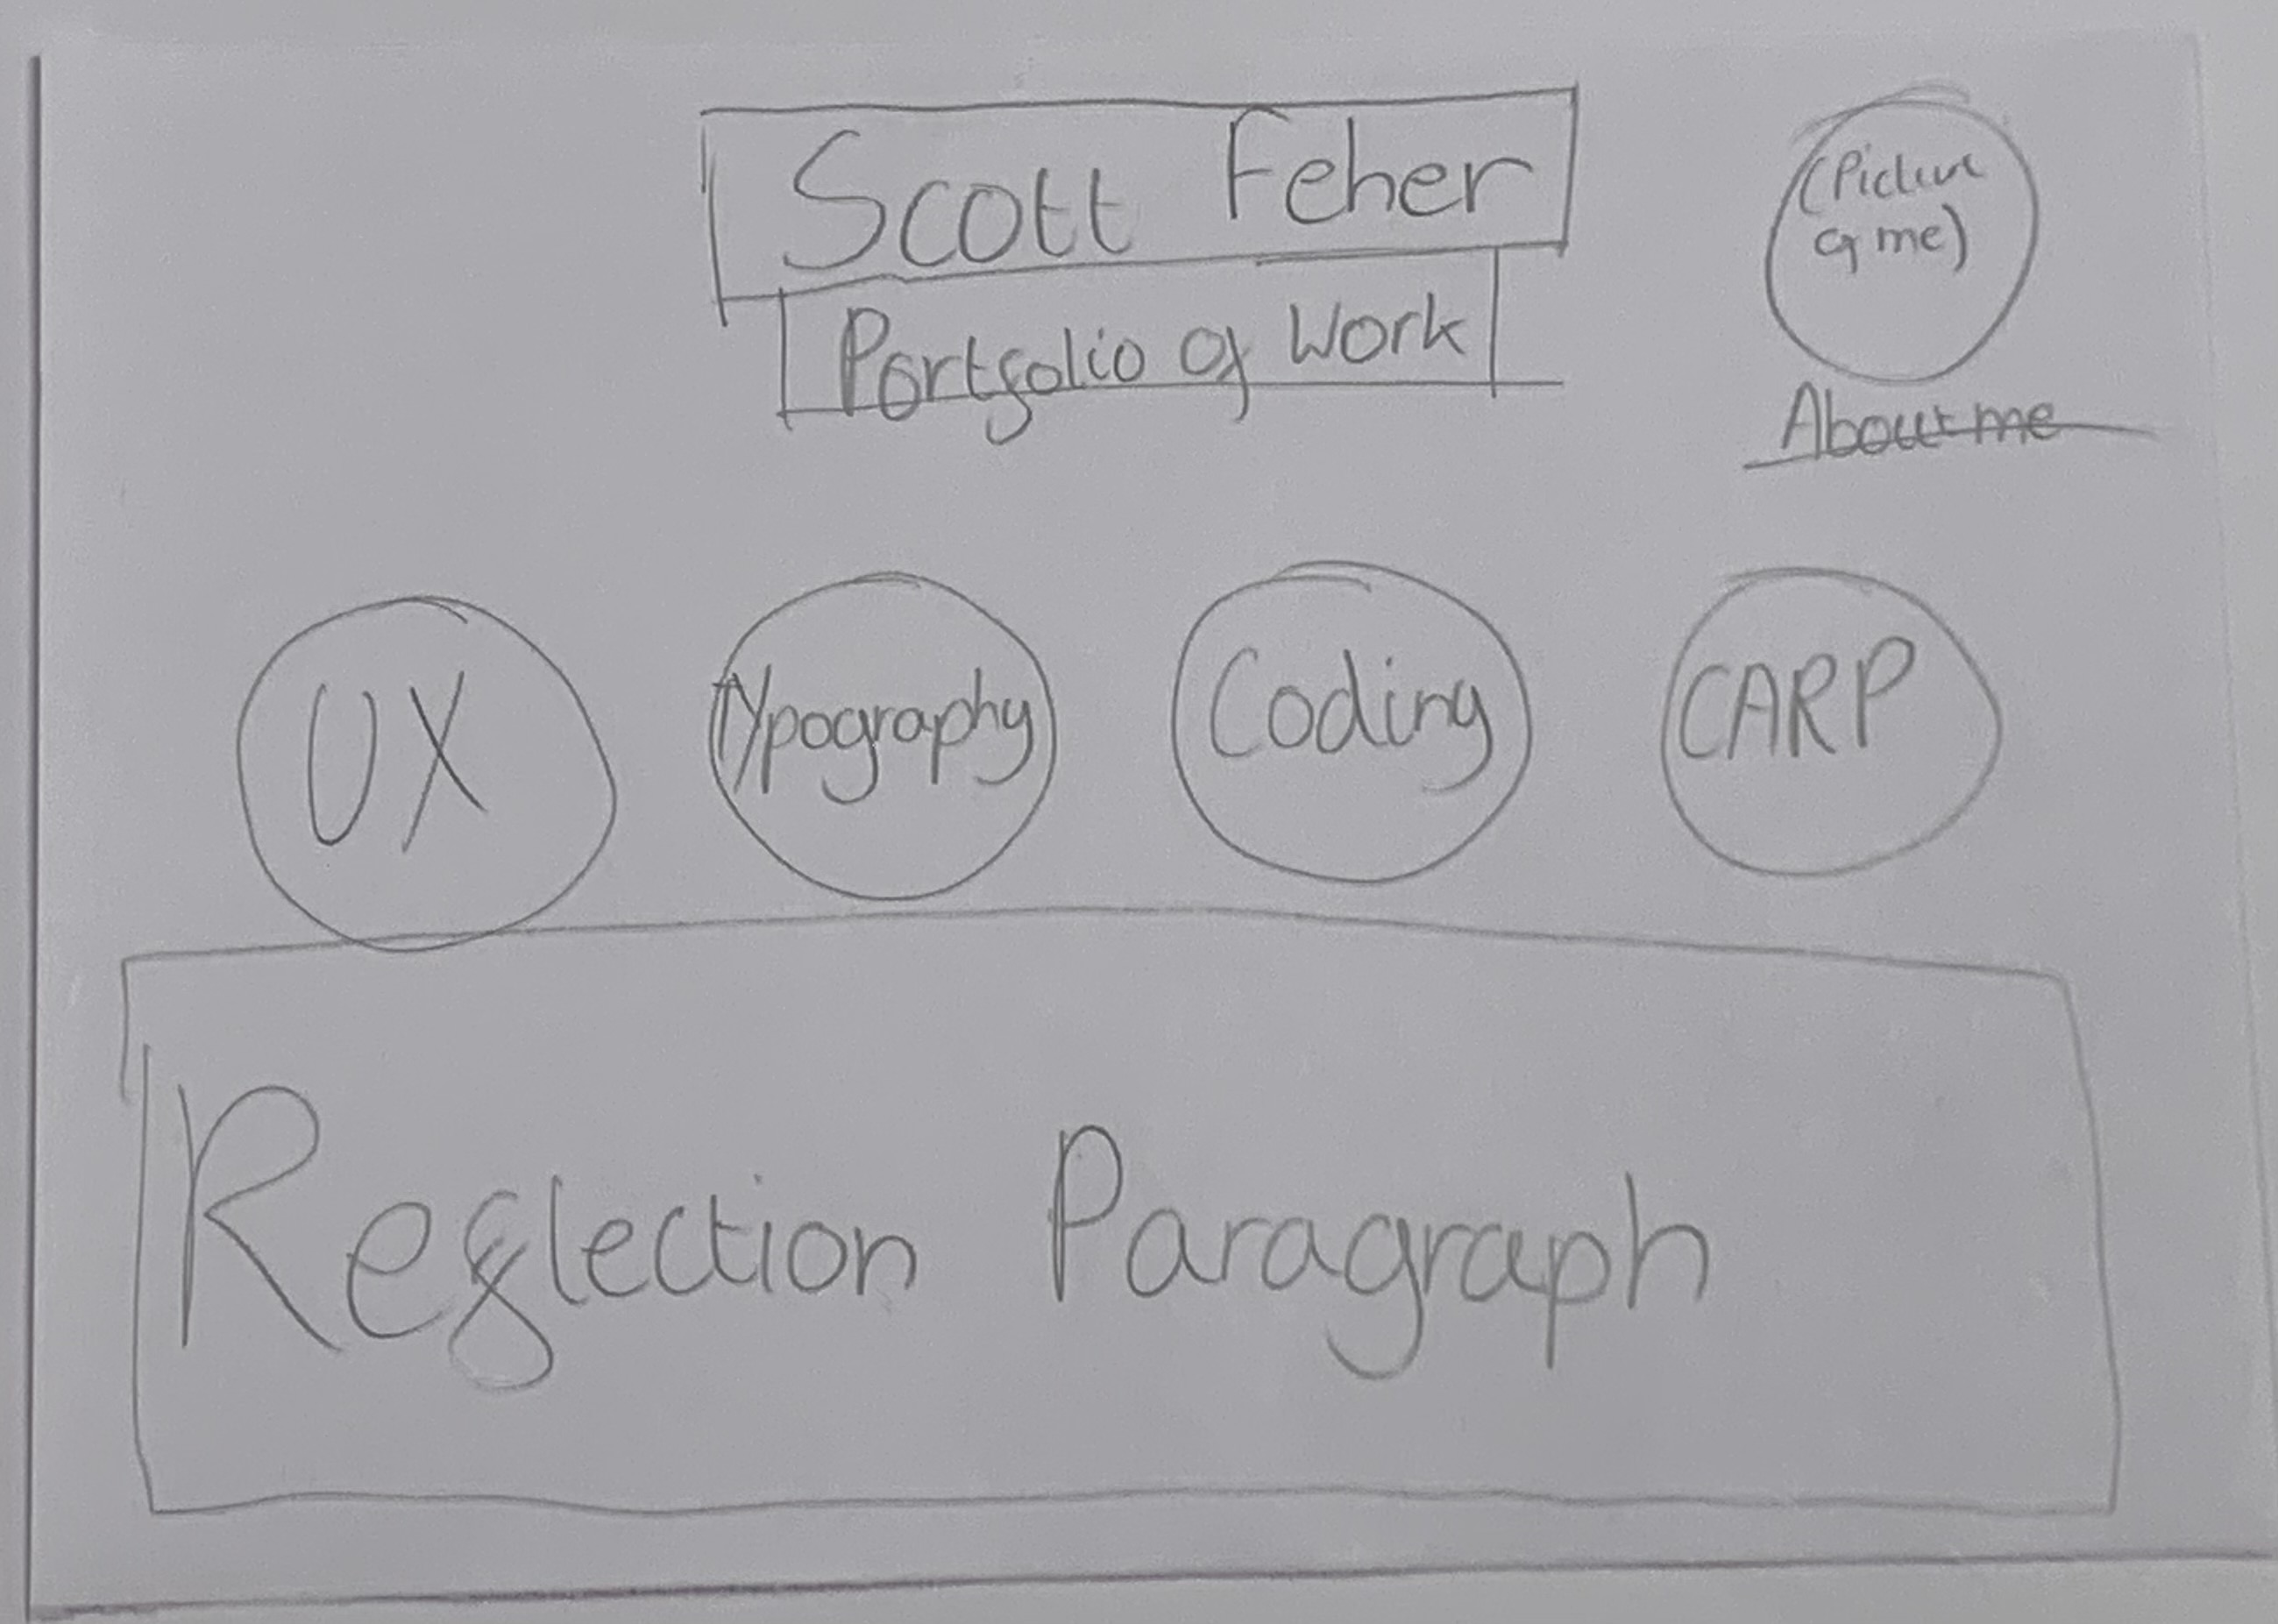 Scott Feher
Portfolio of Work
(Picture
of me)
About me
UX
Typography
Coding
CARP
Reflection Paragraph